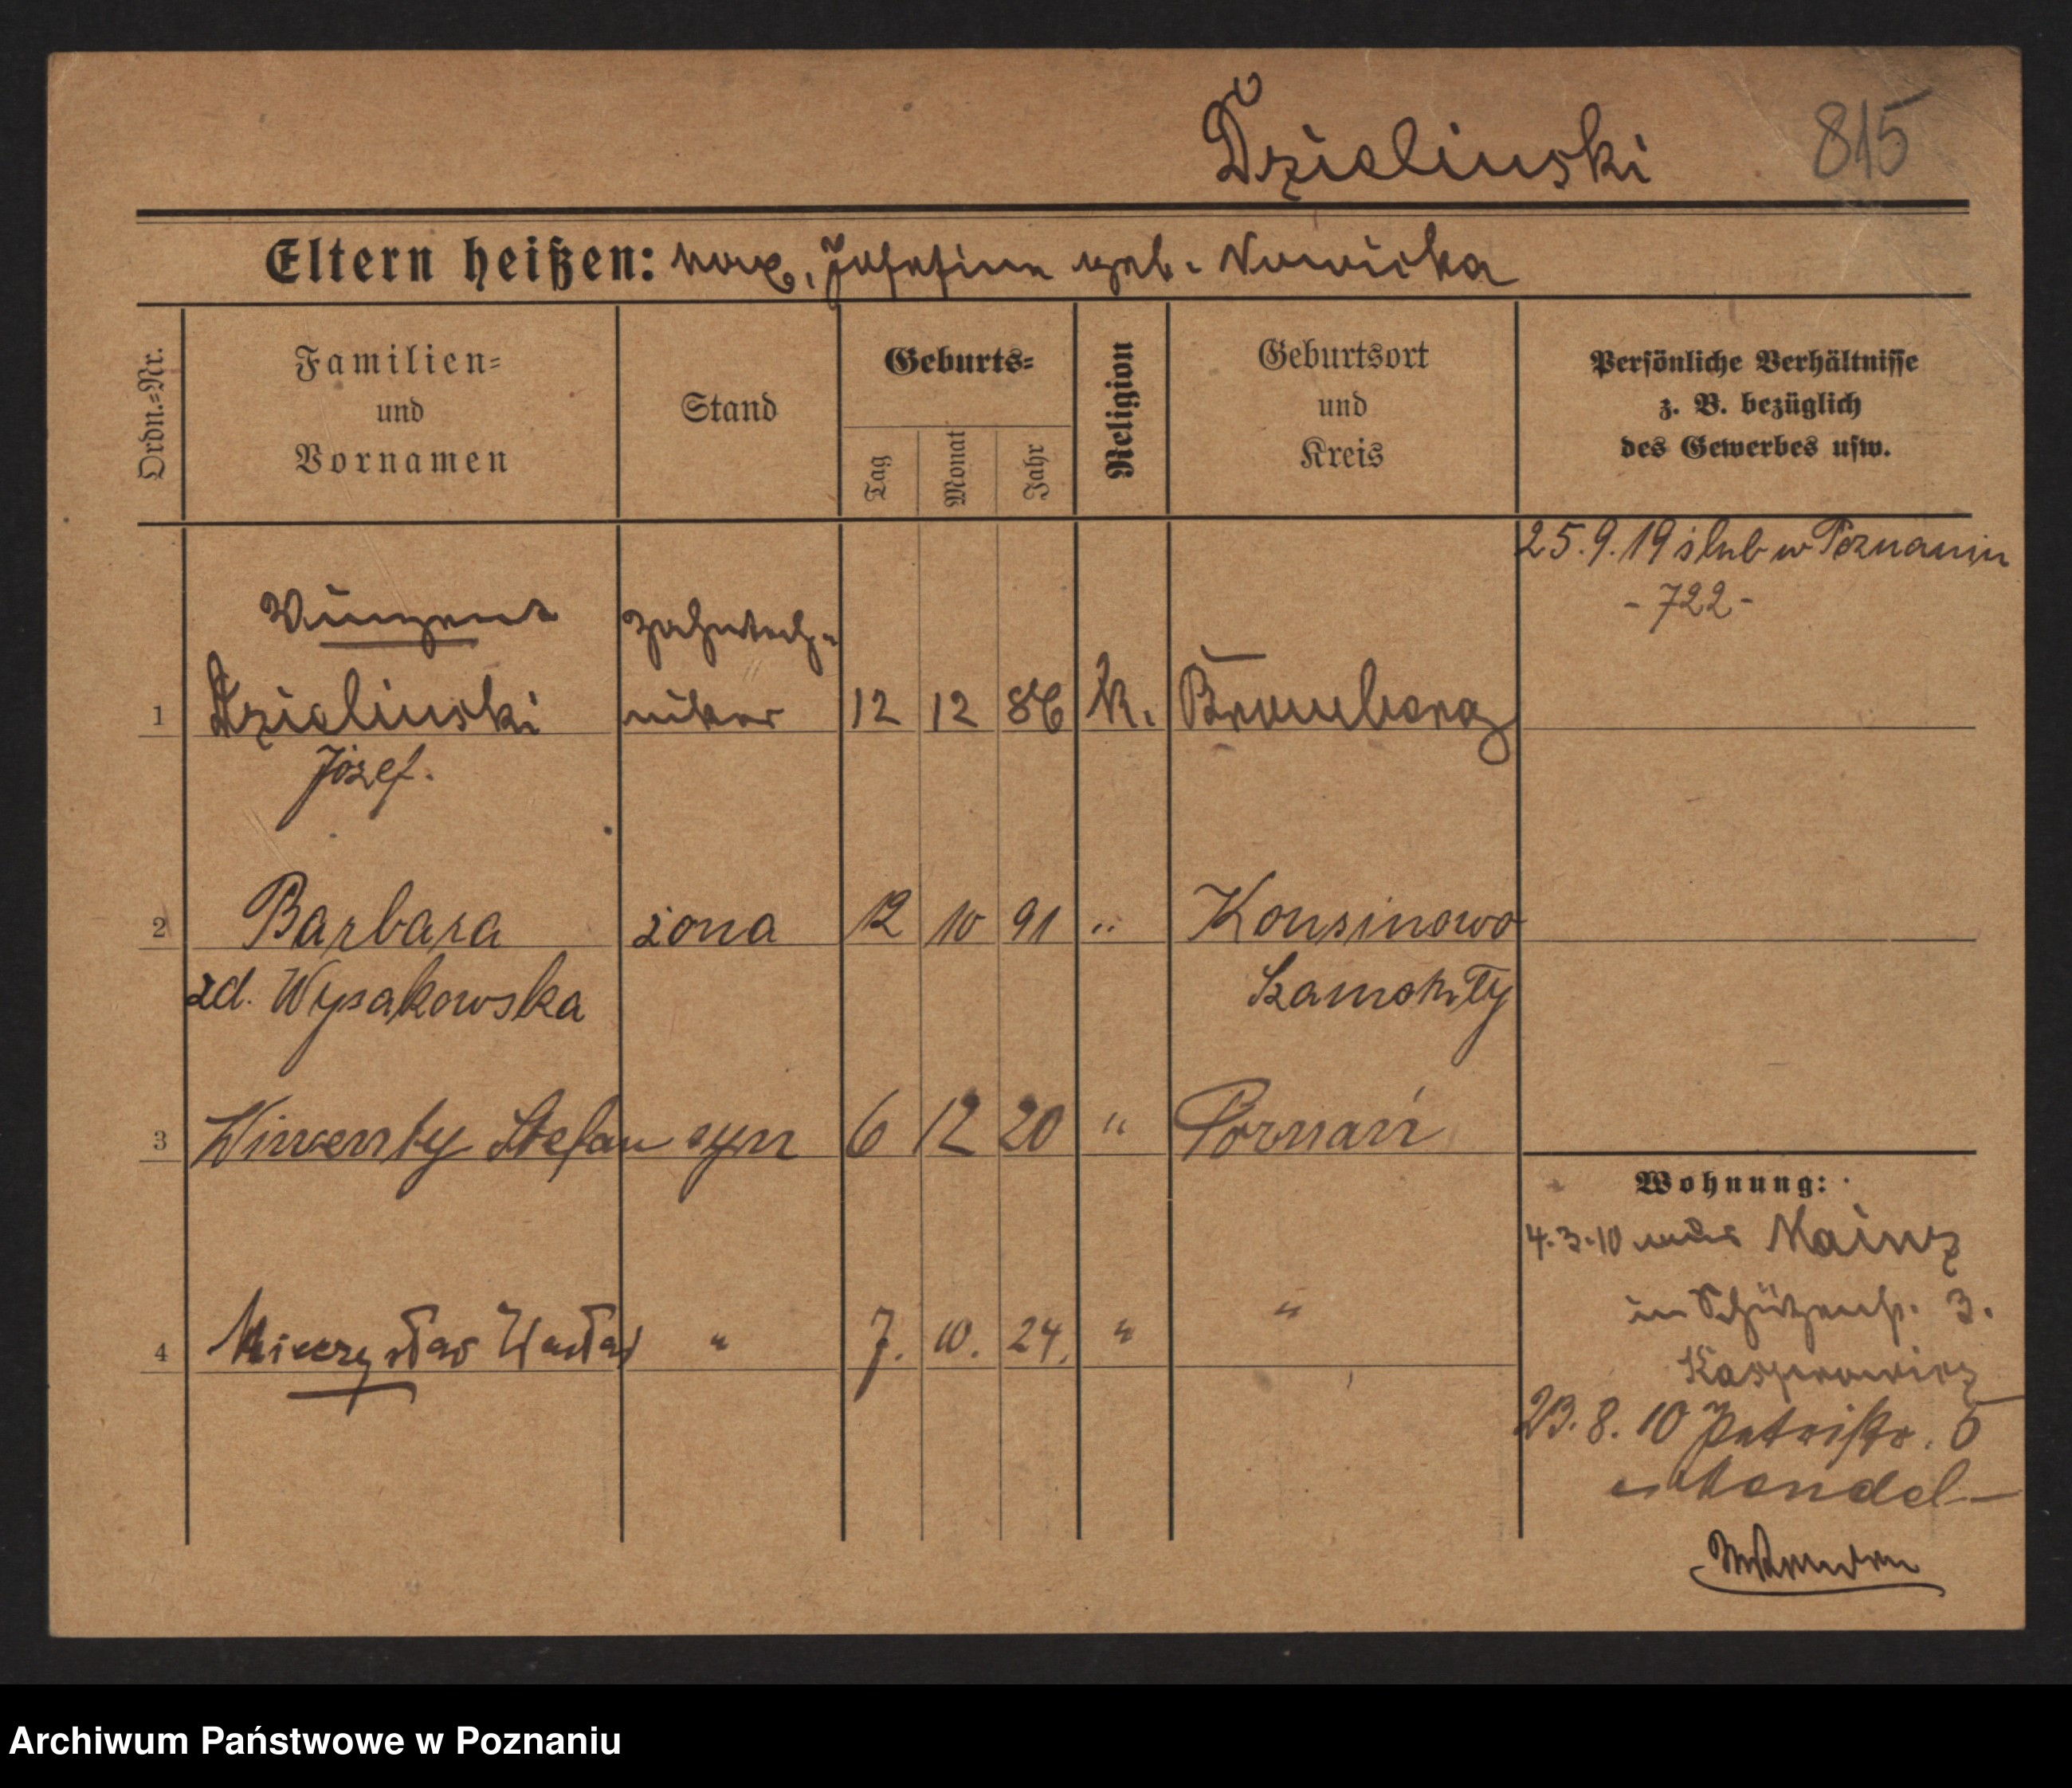 Dzielinski 815
Eltern heißen: Josefine geb. Nowicka
Ordn.=Nr.
Familien=
und
Vornamen
Stand
Geburts=
Tag
Monat
Jahr
Religion
Geburtsort
und
Kreis
Persönliche Verhältnisse
z. B. bezüglich
des Gewerbes usw.
25.9.19 ślub w Poznaniu
- 722 -
Vinzent Zahntech-
1 Dzielinski niker 12 12 86 K. Bromberg
Józef.
2 Barbara żona 12 10 91 " Konsinowo
zd. Wysakowska Szamotuły
3 Wincenty Stefan syn 6 12 20 " Poznań
Wohnung:
4.3.10 aus Mainz
in Schützenstr. 3.
Kasprowicz
4 Mieczysław Wacław " 7. 10. 24. " "
23.8.10 Petristr. 5
Mandel
Archiwum Państwowe w Poznaniu